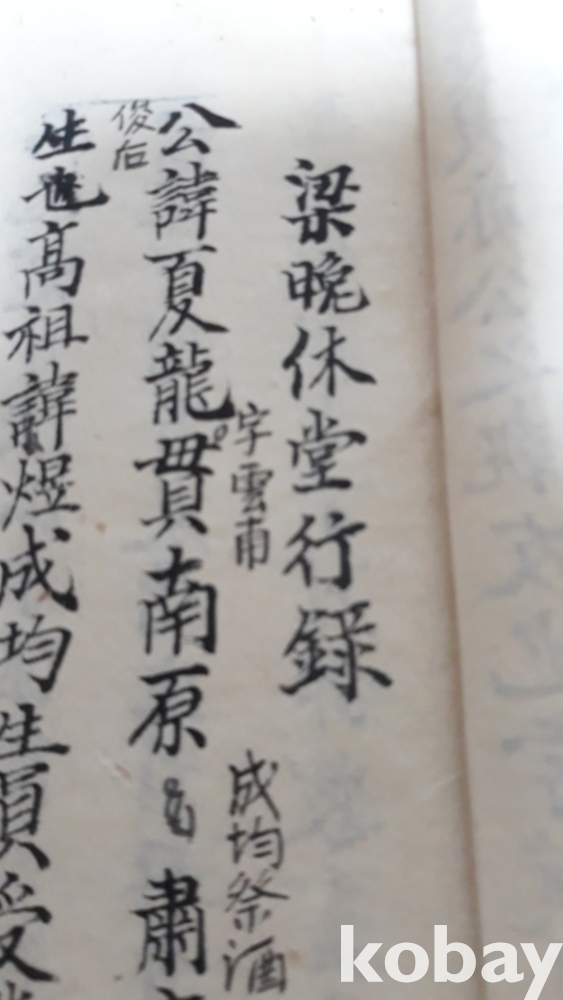 梁晩休堂行録
字雲甫
成均祭酒
公諱夏龍貫南原
肅
俊后
生也高祖諱煜成均生員受
kobay